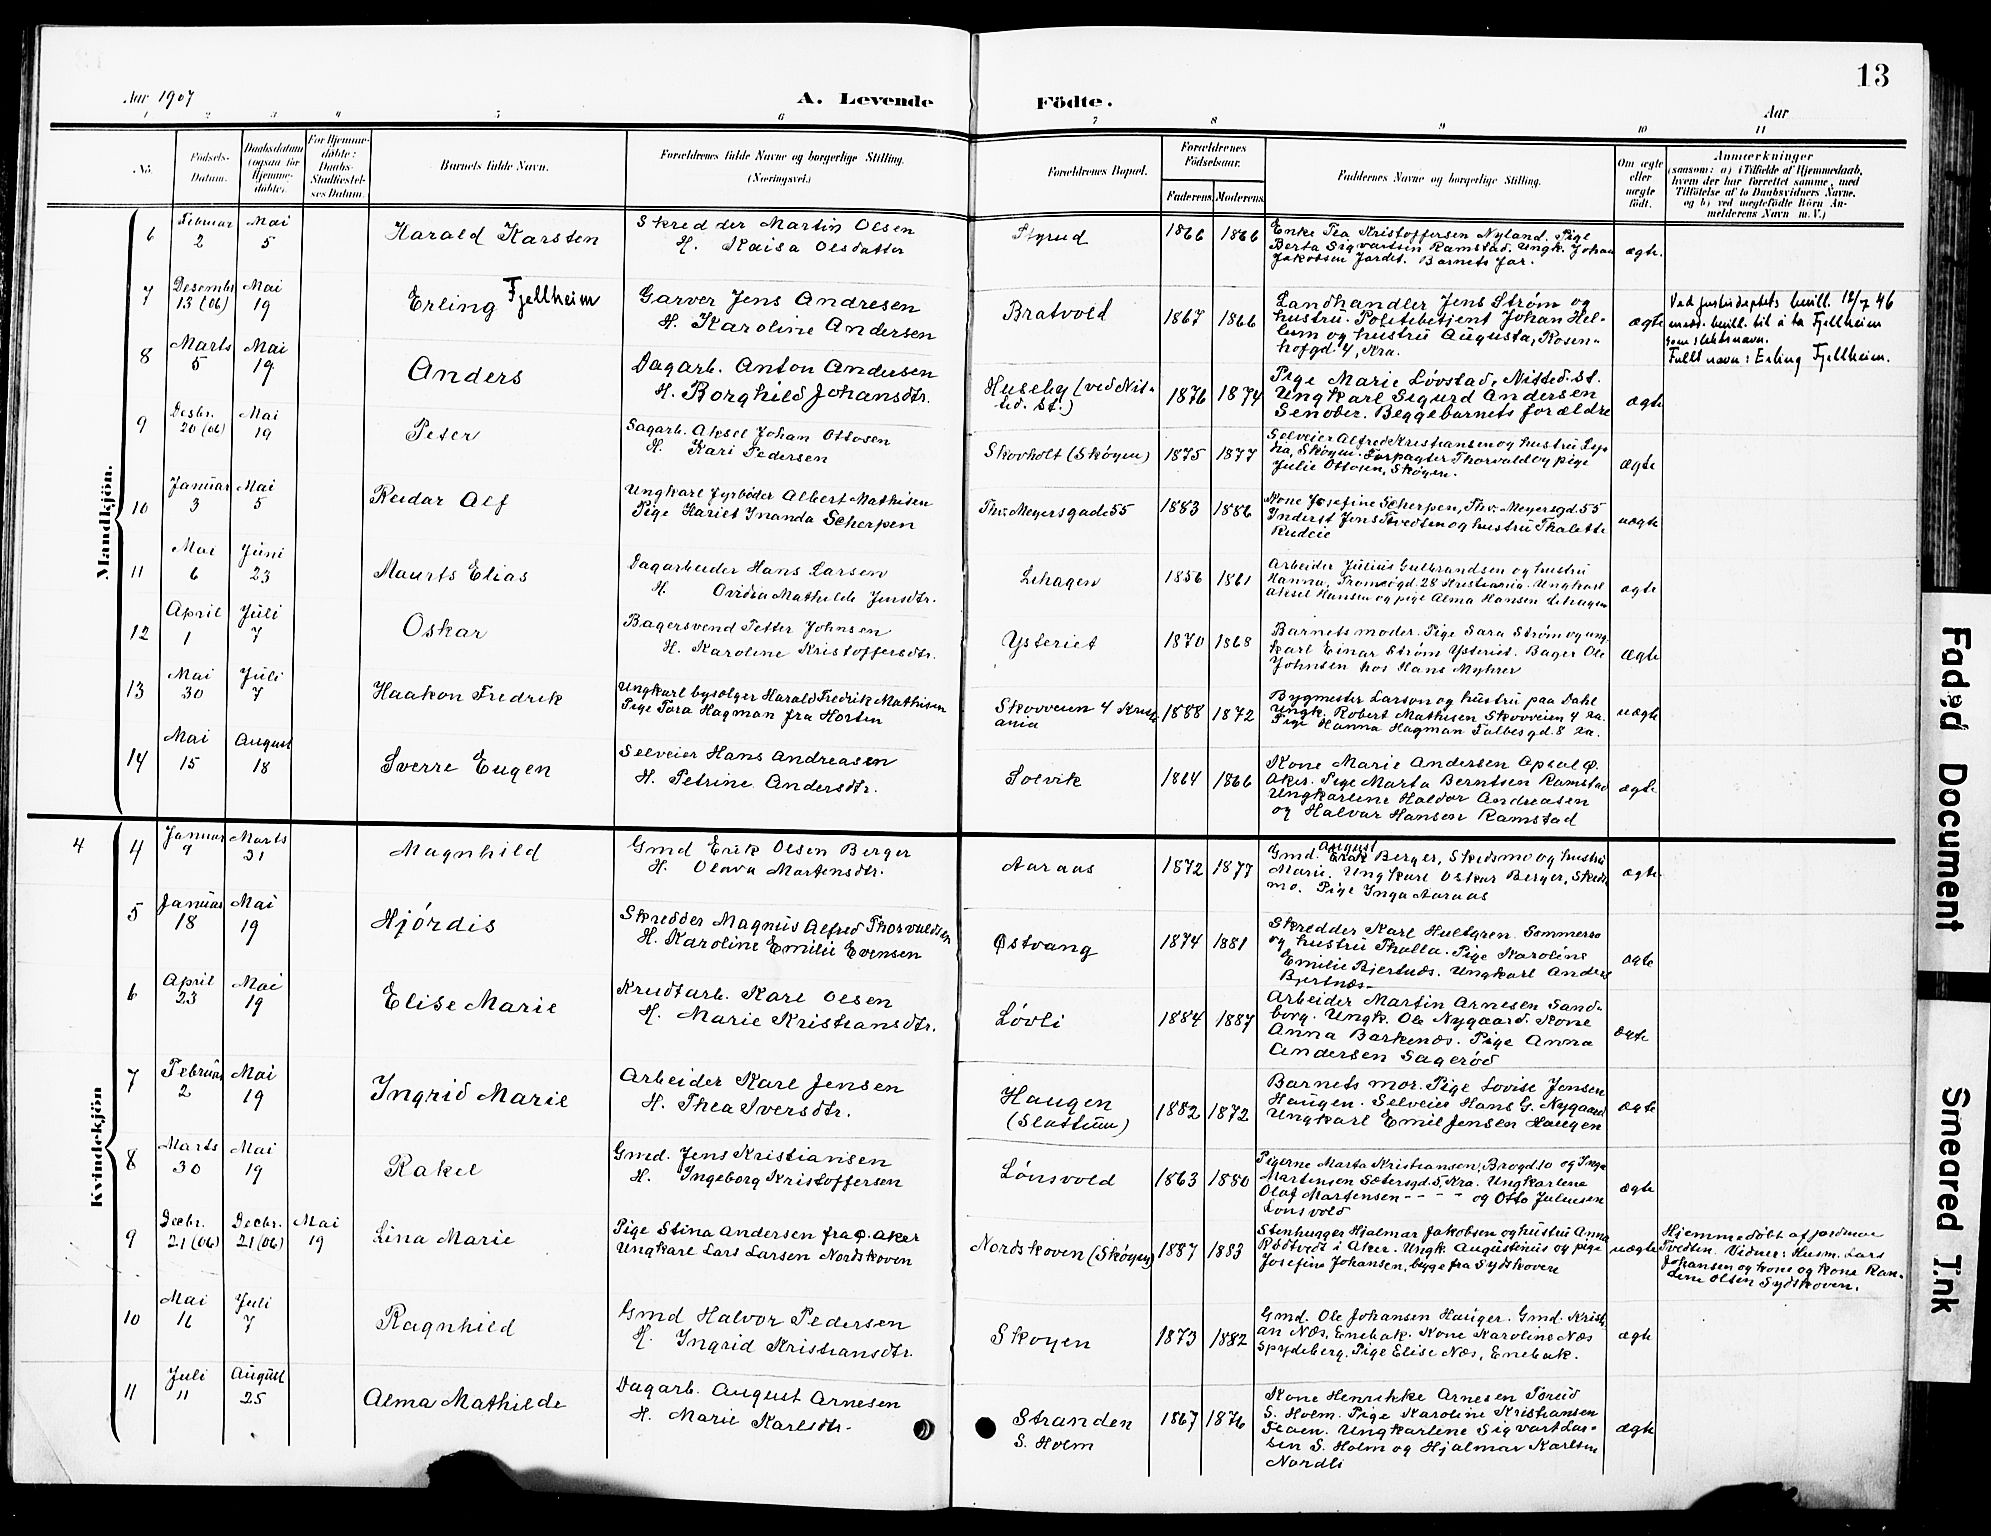 13
Aar 1907
A. Levende Födte.
Aar
1 2 3 4 5 6 7 8 9 10 11
No.
Födsels-
Datum.
Daabsdatum
(ogsaa for
Hjemme-
døbte).
For Hjemme-
døbte:
Daabs-
Stadfæstel-
ses Datum.
Barnets fulde Navn.
Forældrenes fulde Navne og borgerlige Stilling.
(Næringsvei.)
Forældrenes Bopæl.
Forældrenes
Födselsaar.
Faderens. Moderens.
Faddernes Navne og borgerlige Stilling.
Om ægte
eller
uægte
født.
Anmærkninger
(saasom: a) i Tilfælde af Hjemmedaab,
hvem der har forrettet samme, med
Tilföielse af to Daabsvidners Navne,
og b) ved uegtefödte Börn An-
melderens Navn m. V.)
Mandkjön.
6 Februar 2 Mai 5 Harald Karsten
Skredder Martin Olsen
H. Kaisa Olsdatter
Flyrud 1866 1866
Enke Tea Kristoffersen Nyland. Pige
Berta Sigvartsen Ramstad. Ungk. Johan
Jakobsen Jordet. Barnets far.
ægte.
7 Desembr 13 (06) Mai 19 Erling Fjellheim
Garver Jens Andresen
H. Karoline Andersen
Bratvold 1867 1866
Landhandler Jens Strøm og
hustru. Politibetjent Johan Hel-
lum og hustru Augusta, Rosen-
hofgd. 4, Kra.
ægte
Ved justisdeptets bevill. 12/7 46
medd. bevill. til å ta Fjellheim
som slektsnavn.
Fullt navn: Erling Fjellheim.
8 Marts 5 Mai 19 Anders
Dagarb. Anton Andersen
H. Borghild Johansdtr.
Huseby (ved Nit-
ted. St.) 1876 1874
Pige Marie Løvstad, Nitted. St.
Ungkarl Sigurd Andersen
Senober. Begge barnets forældre
ægte
9 Desbr. 20 (06) Mai 19 Peter
Sagarb. Aksel Johan Ottosen
H. Kari Pedersen
Skovholt (Skøyen) 1875 1877
Selveier Alfred Kristiansen og hustru Lyp
ia, Skøyen. Forpagter Thorvald og pige
Julie Ottosen, Skøyen.
ægte
10 Januar 3 Mai 5 Reidar Alf
Ungkarl fyrbøder Albert Mathisen
Pige Hariet Inanda Scherpen
Th. Meyersgade 55 1883 1886
Kone Josefine Scherpen, Thv. Meyersgd. 55
Inderst Jens Tvedten og hustru Thalette
Rudeie
uægte
11 Mai 6 Juni 23 Maurits Elias
Dagarbeider Hans Larsen
H. Ovidia Mathilde Jensdtr.
Lihagen 1856 1861
Arbeider Julius Gulbrandsen og hustru
Hanna, Tromsøgd. 28 Kristiania. Ungkarl
Aksel Hansen og pige Alma Hansen Lihagen
ægte
12 April 1 Juli 7 Oskar
Bagersvend Petter Johnsen
H. Karoline Kristoffersdtr.
Ysteriet 1870 1868
Barnets moder. Pige Sara Strøm og ung-
karl Einar Strøm Ysteriet. Bager Ole
Johnsen hos Hans Myhrer
ægte
13 Mai 30 Juli 7 Haakon Fredrik
Ungkarl bysælger Harald Fredrik Mathisen
Pige Tora Hagman fra Horten
Skovveien 4 Krist-
ania 1888 1872
Bygmester Larson og hustru paa Dahl
Ungk. Robert Mathisen Skovveien 4 Kra.
Pige Hanna Hagman Falbesgd. 8 Kra.
uægte
14 Mai 15 August 18 Sverre Eugen
Selveier Hans Andreasen
H. Petrine Andersdtr.
Solvik 1864 1866
Kone Marie Andersen Apsal Ø.
Aker. Pige Marta Berntsen Ramstad
Ungkarlene Haldor Andreasen
og Halvar Hansen Ramstad
ægte
Kvindekjön
4 4 Januar 9 Marts 31 Magnhild
Gmd Erik Olsen Berger
H. Olava Martensdtr.
Aaraas 1872 1877
Gmd. August Berger, Skedsmo og hustru
Marie. Ungkarl Oskar Berger, Skeds
mo. Pige Inga Aaraas
ægte
5 Januar 18 Mai 19 Hjórdis
Skredder Magnus Alfred Thorvaldsen
H. Karoline Emilie Evensen
Østvang 1874 1881
Skredder Karl Hultgren. Sommerro
og hustru Thalla. Pige Karoline
Emilie Bjertnæs. Ungkarl Anders
Bjertnæs
ægte
6 April 23 Mai 19 Elise Marie
Krudtarb. Karl Olsen
H. Marie Kristiansdtr.
Løvli 1884 1887
Arbeider Martin Arnesen Sand-
borg. Ungk. Ole Nygaard. Kone
Anna Barkenæs. Pige Anna
Andersen Sagerød
ægte
7 Februar 2 Mai 19 Ingrid Marie
Arbeider Karl Jensen
H. Thea Iversdtr.
Haugen
(Slattum) 1882 1872
Barnets mor. Pige Lovise Jensen
Haugen. Selveier Hans G. Nygaard
Ungkarl Emil Jensen Haugen
ægte
8 Marts 30 Mai 19 Rakel
Gmd. Jens Kristiansen
H. Ingeborg Kristoffersen
Lónsvold 1863 1880
Pigerne Marta Kristiansen, Brogd. 10 og Inga
Martensen Sætersgd. 5, Kra. Ungkarlene
Olaf Martensen - - - - og Otto Juliussen
Lónsvold
ægte
9 Decbr. 21 (06) Decbr. 21 (06) Mai 19 Lina Marie
Pige Stina Andersen fra Ø. Aker
Ungkarl Lars Larsen Nordskoven
Nordskoven (Skøyen) 1887 1883
Stenhugger Hjalmar Jakobsen og hustru Anna
Rødtvedt i Aker. Ungk. Augustinus og pige
Josefine Johansen, byge fra Sydskoven
uægte
Hjemmedøbt af jordmor
Tvedten. Vidner: Husm. Lars
Johansen og kone og kone Kan-
line Olsen Sydskoven.
10 Mai 16 Juli 7 Ragnhild
Gmd Halvor Pedersen
H. Ingrid Kristiansdtr.
Skøyen 1873 1882
Gmd. Ole Johansen Hauger. Gmd. Kristi-
an Næs, Enebak. Kone Karoline Næs
Spydeberg. Pige Elise Næs, Enebak.
ægte
11 Juli 11 August 25 Alma Mathilde
Dagarb. August Arnesen
H. Marie Karlsdtr.
Stranden
S. Holm 1867 1876
Kone Henrikke Arnesen Foreid
S. Holm. Pige Karoline Kristiansen
Floen. Ungkarlene Sigvart Lar-
sen S. Holm og Hjalmar Karlsen
Nordli
ægte
Faded Document
Smeared Ink